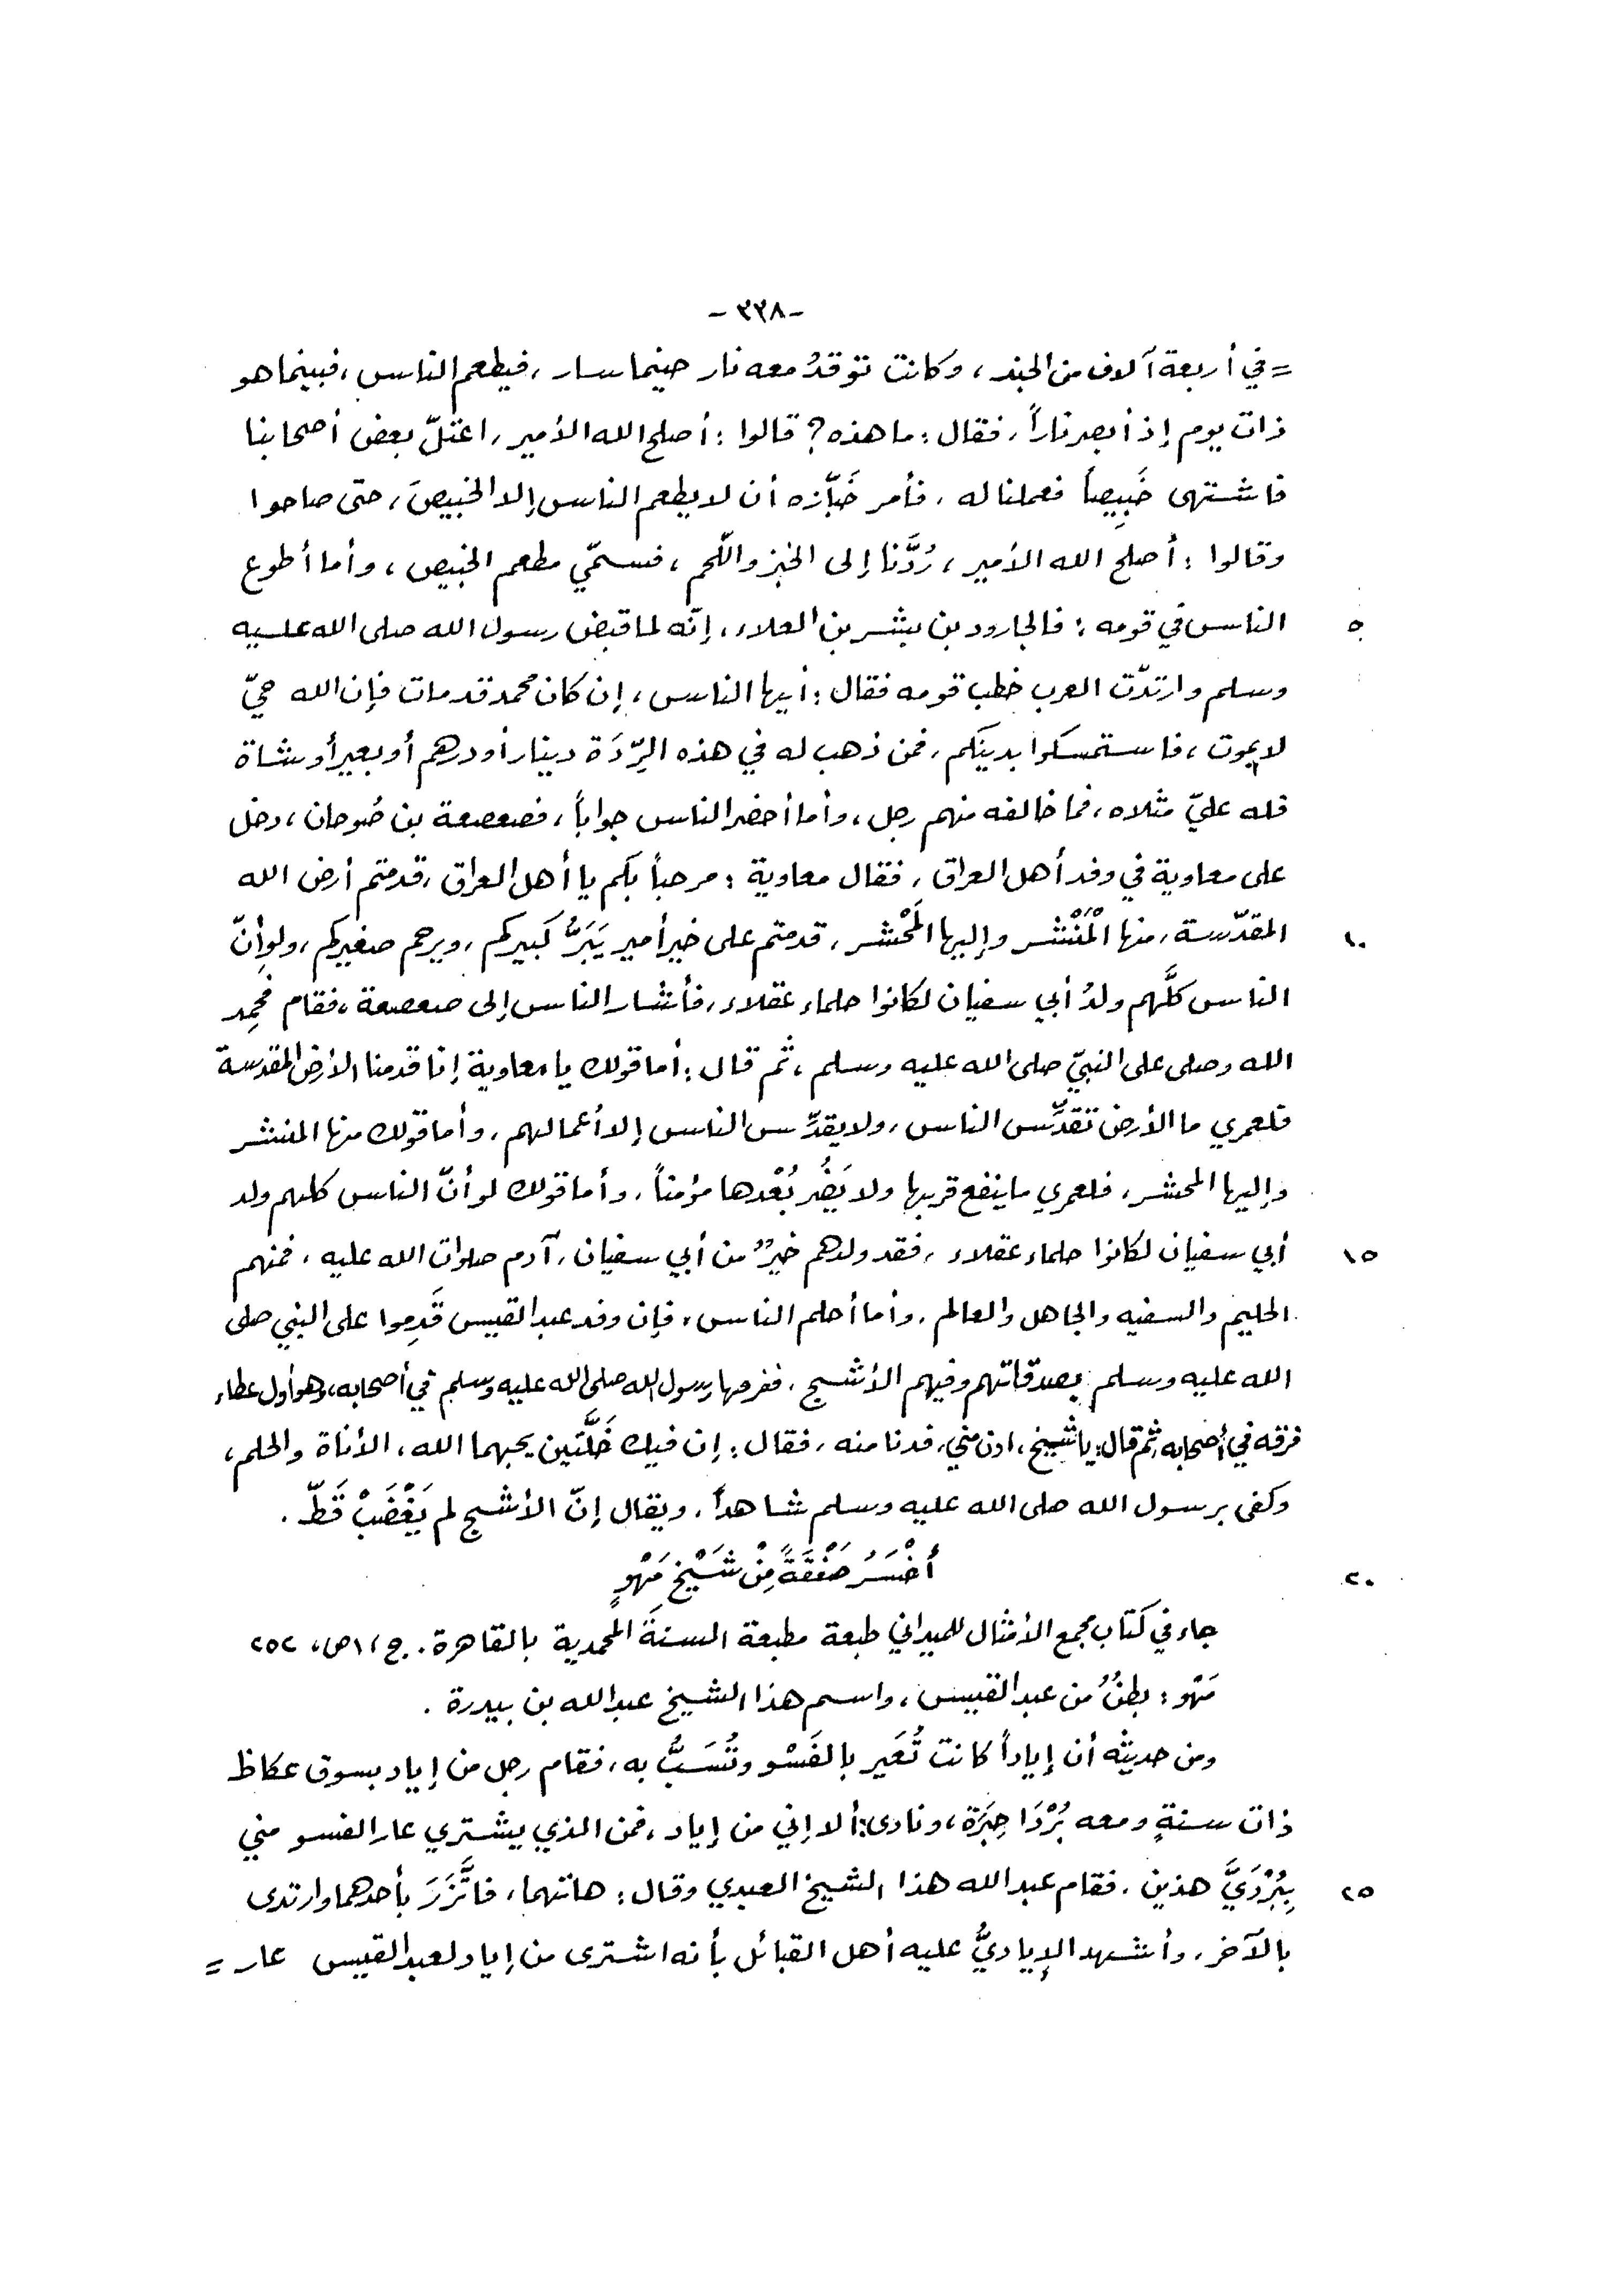 -٣٣٨-
= في أربعة آلاف من الجند، وكانت توقدُ معه نار حيثما سار، فيطعم الناس، فبينما هو
ذات يوم إذ أبصر ناراً، فقال: ما هذه؟ قالوا: أصلح الله الأمير، اعتلّ بعض أصحابنا
فاشتهى خَبِيصاً فعملنا له، فأمر خَبّازه أن لا يطعم الناس إلا الخبيصَ، حتى صاحوا
وقالوا: أصلح الله الأمير، رُدَّنا إلى الخبز واللّحم، فسمّي مطعم الخبيص، وأما أطوع
الناس في قومه: فالجارود بن بشر بن العلاء، إنّه لما قبض رسول الله صلى الله عليه ٥
وسلم وارتدّت العرب خطب قومه فقال: أيها الناس، إن كان محمد قد مات فإن الله حيّ
لا يموت، فاستمسكوا بدينكم، فمن ذهب له في هذه الرِّدَة دينار أو درهم أو بعير أو شاة
فله عليّ مثلاه، فما خالفه منهم رجل، وأما أحضر الناس جواباً، فصعصعة بن صُوحان، دخل
على معاوية في وفد أهل العراق، فقال معاوية: مرحباً بكم يا أهل العراق، قدمتم أرض الله
المقدّسة، منها الْمَنْشر وإليها الْمَحْشر، قدمتم على خير أمير يَبَرُّ كبيركم، ويرحم صغيركم، ولو أنّ ١٠
الناس كلَّهم ولدُ أبي سفيان لكانوا حلماء عقلاء، فأشار الناس إلى صعصعة، فقام فحمِد
الله وصلى على النبيّ صلى الله عليه وسلم، ثم قال: أما قولك يا معاوية إنا قدمنا الأرض المقدسة
فلعمري ما الأرض تقدِّس الناس، ولا يقدِّس الناس إلا أعمالهم، وأما قولك منها المنشر
وإليها المحشر، فلعمري ما ينفع قربها ولا يَضُر بُعْدها مؤمناً، وأما قولك لو أنّ الناس كلهم ولد
أبي سفيان لكانوا حلماء عقلاء، فقد ولدهم خيرٌ من أبي سفيان، آدم صلوات الله عليه، فمنهم ١٥
الحليم والسفيه والجاهل والعالم، وأما أحلم الناس، فإن وفد عبد القيس قَدِموا على النبي صلى
الله عليه وسلم بصدقاتهم وفيهم الأشج، ففرقها رسول الله صلى الله عليه وسلم في أصحابه، وهو أول عطاء
فرقه في أصحابه، ثم قال: يا شيخ، ادن مني، فدنا منه، فقال: إن فيك خَلَّتَين يحبهما الله، الأناة والحلم،
وكفى برسول الله صلى الله عليه وسلم شاهداً، ويقال إنّ الأشج لم يَغْضَبْ قَطّ.
أَخْسَرُ صَفْقَةً مِنْ شَيْخِ مَهْوٍ ٢٠
جاء في كتاب مجمع الأمثال للميداني طبعة مطبعة السنة المحمدية بالقاهرة. ج ١، ص، ٢٥٢
مَهْو: بطنٌ من عبد القيس، واسم هذا الشيخ عبد الله بن بيدرة.
ومن حديثه أن إياداً كانت تُعَير بالفَسْو وتُسَبُّ به، فقام رجل من إياد بسوق عكاظ
ذات سنةٍ ومعه بُرْدَا حِبَرَة، ونادى: ألا إني من إياد، فمن الذي يشتري عار الفسو مني
بِبُرْدَيَّ هذين، فقام عبد الله هذا الشيخ العبدي وقال: هاتهما، فاتَّزَرَ بأحدهما وارتدى ٢٥
بالآخر، وأشهد الإياديُّ عليه أهل القبائل بأنه اشترى من إياد لعبد القيس عار =